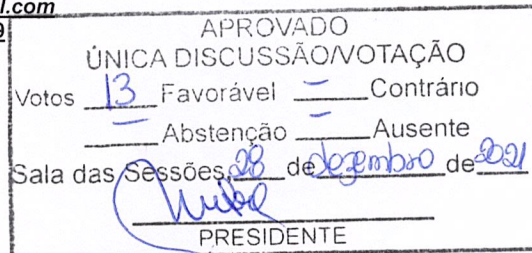 l.com
9
APROVADO
ÚNICA DISCUSSÃO/VOTAÇÃO
Votos 13 Favorável – Contrário
– Abstenção – Ausente
Sala das Sessões, 28 de dezembro de 2021
PRESIDENTE